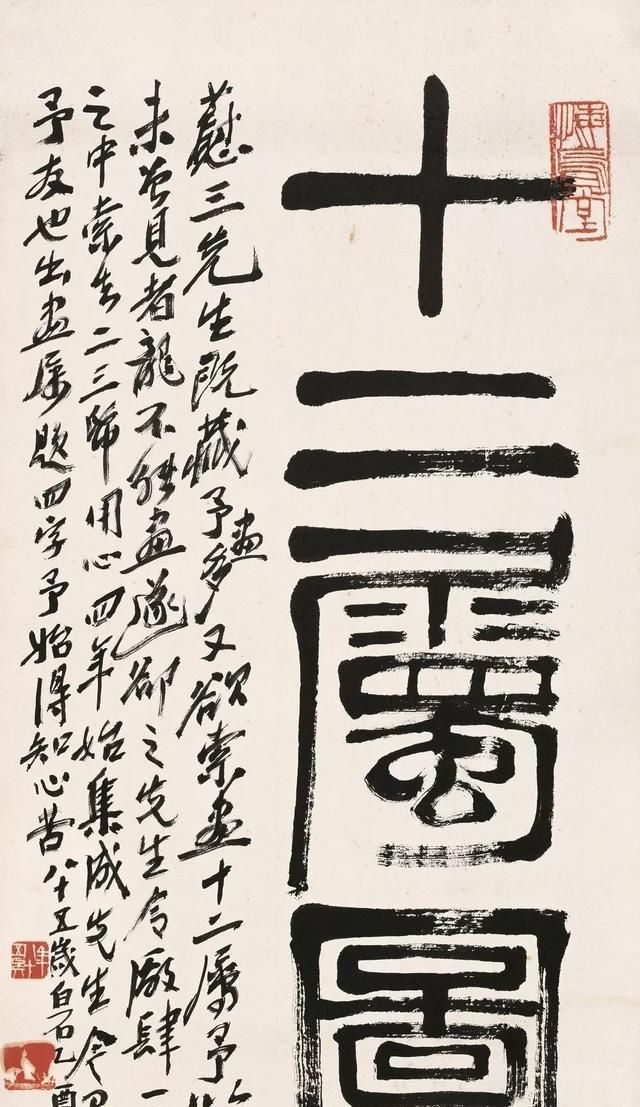 十二屬圖
三先生既藏予畫多又欲索畫十二屬予
未曾見者龍不能畫遂卻之先生令廠肆一
之中索去二三幅用心四年始集成先生令
予友也出畫屬題四字予始得知心苦八十五歲白石乙酉